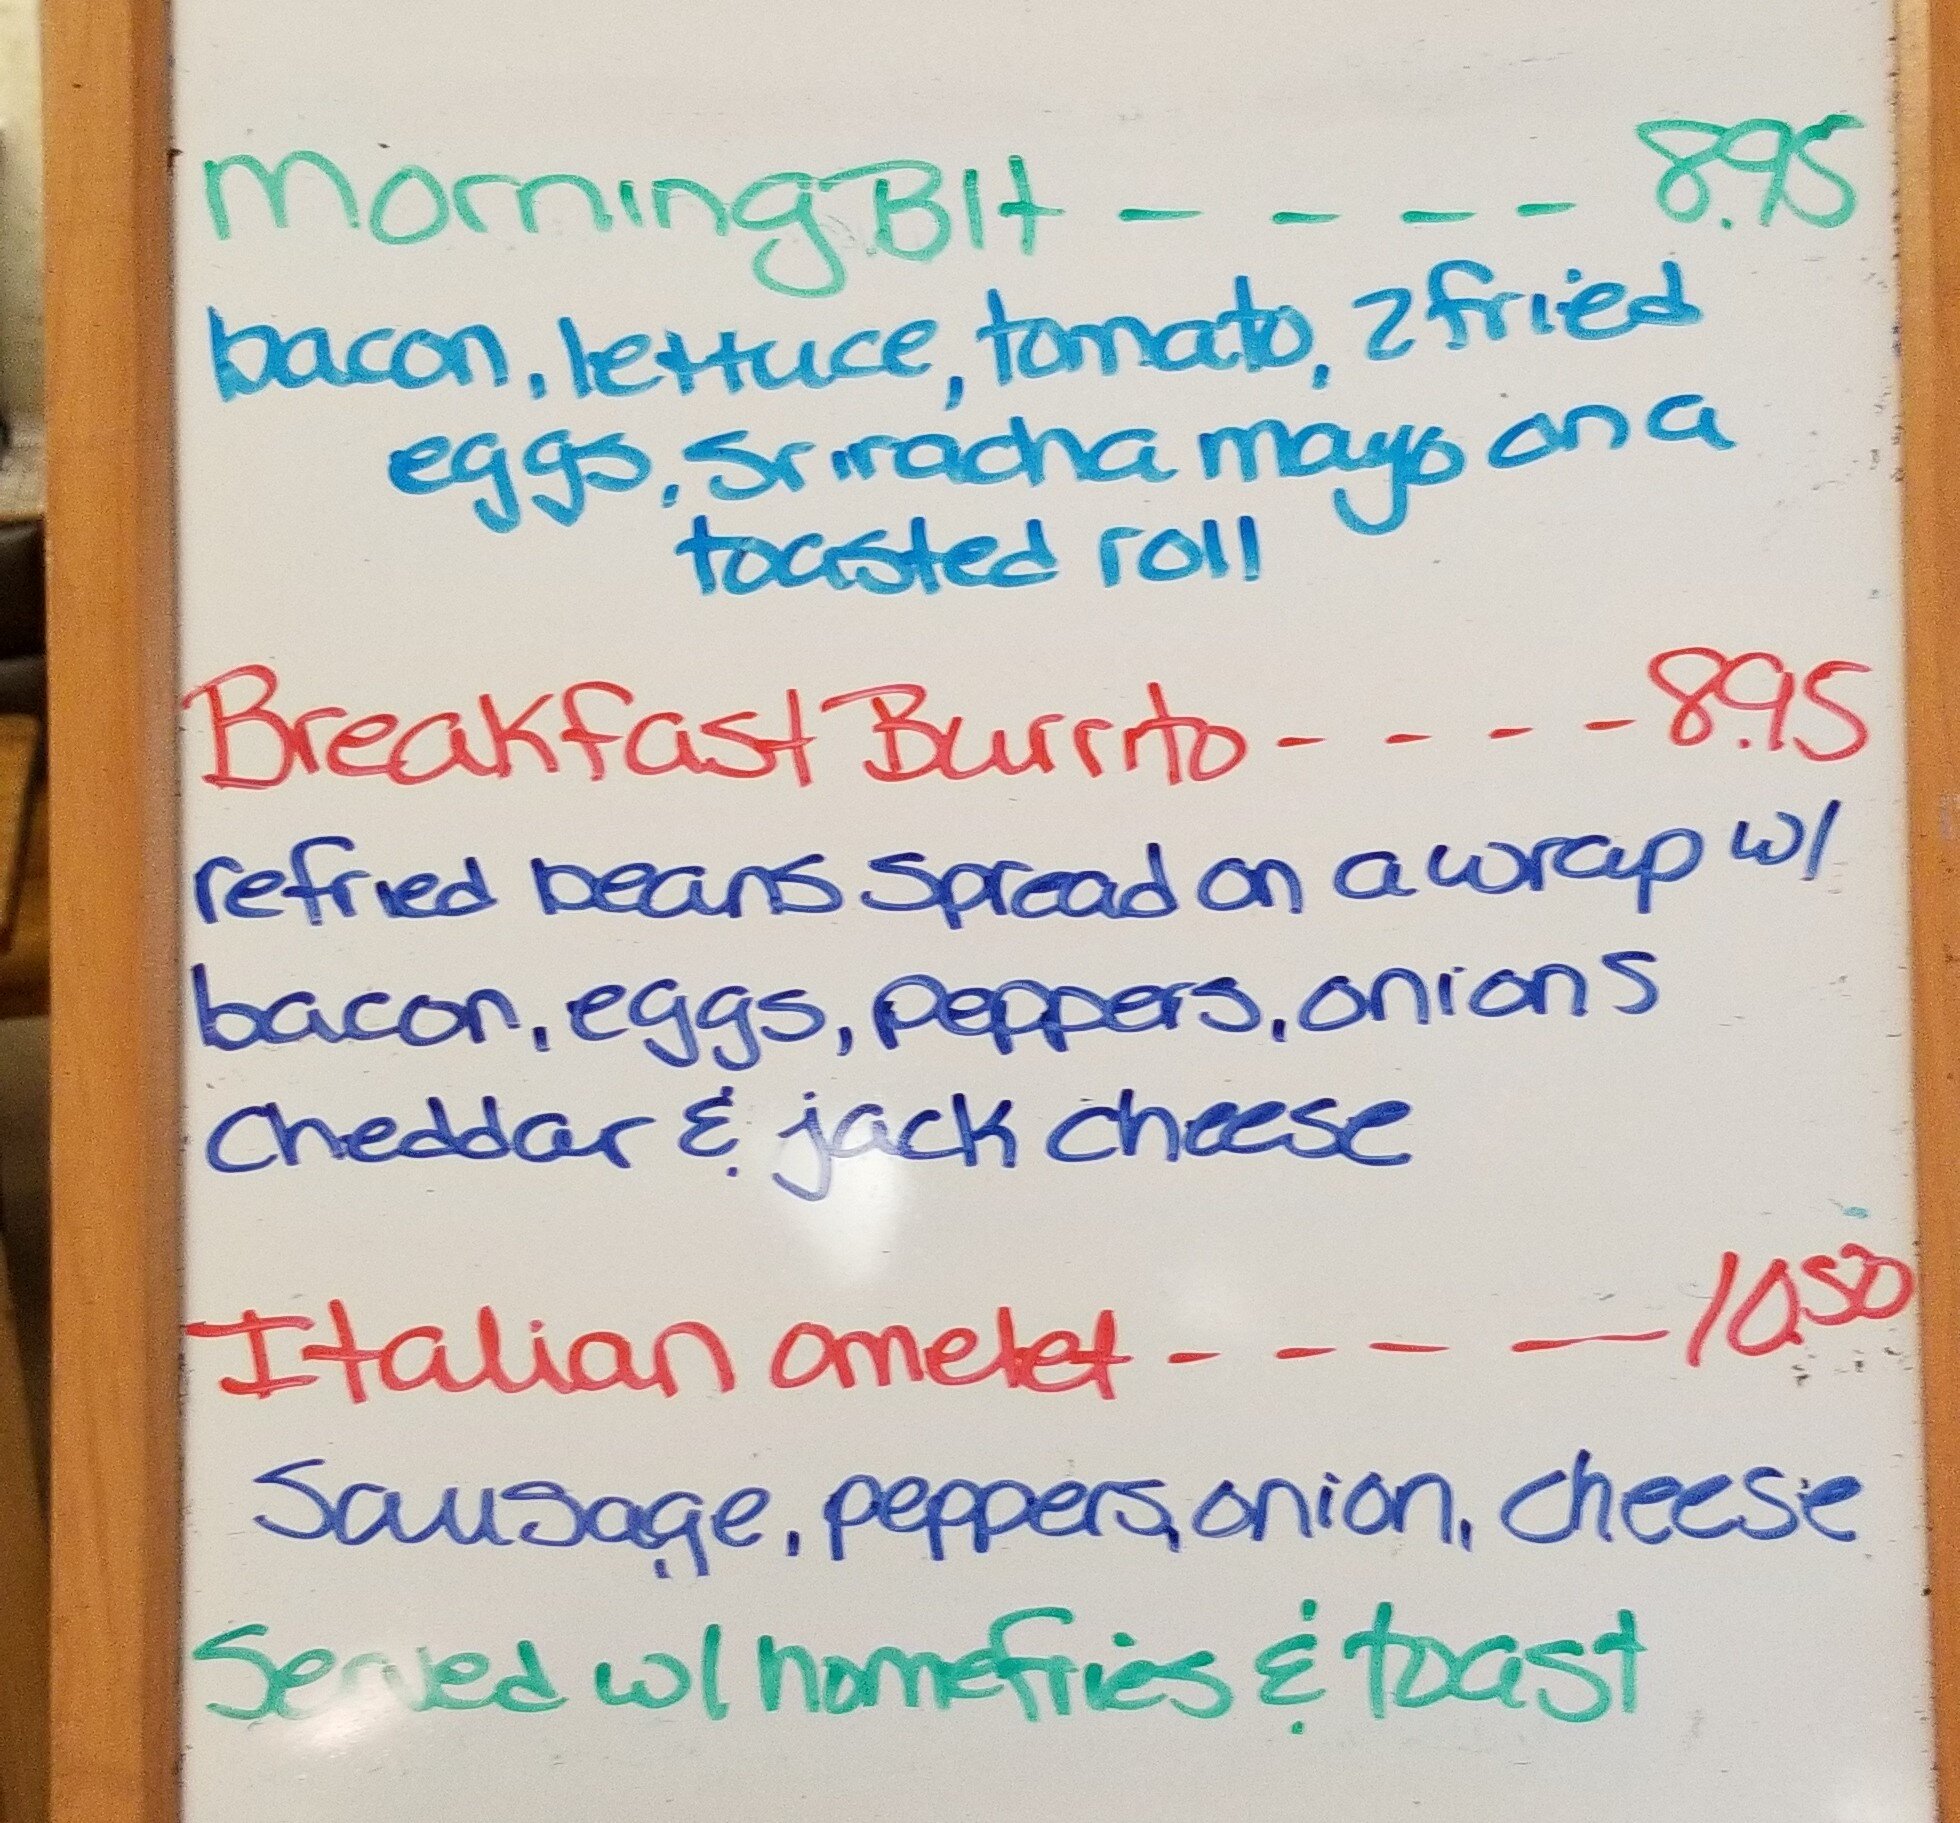 Morning Blt - - - - 8.95
bacon, lettuce, tomato, 2 fried
eggs, sriracha mayo on a
toasted roll
Breakfast Burrito - - - - 8.95
refried beans spread on a wrap w/
bacon, eggs, peppers, onions
Cheddar & jack cheese
Italian omelet - - - - 10.50
Sausage, peppers, onion, cheese
Served w/ homefries & toast